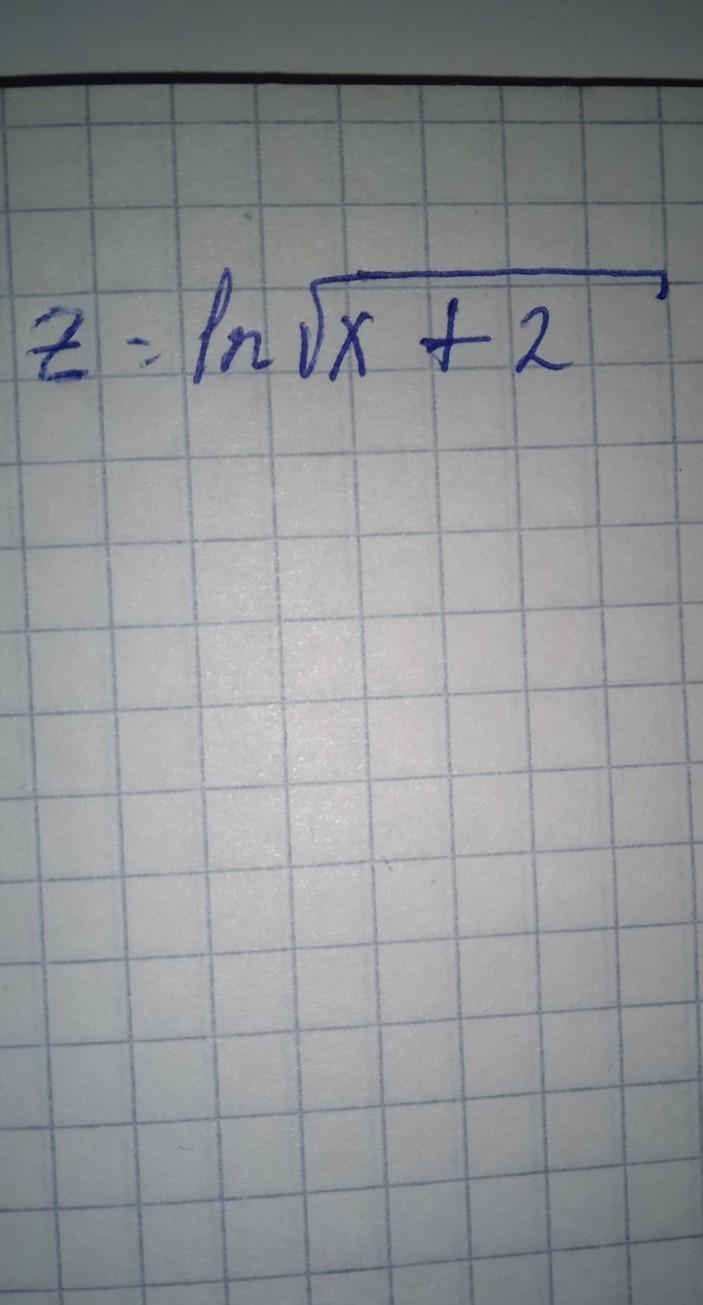 z = ln √(x + 2)